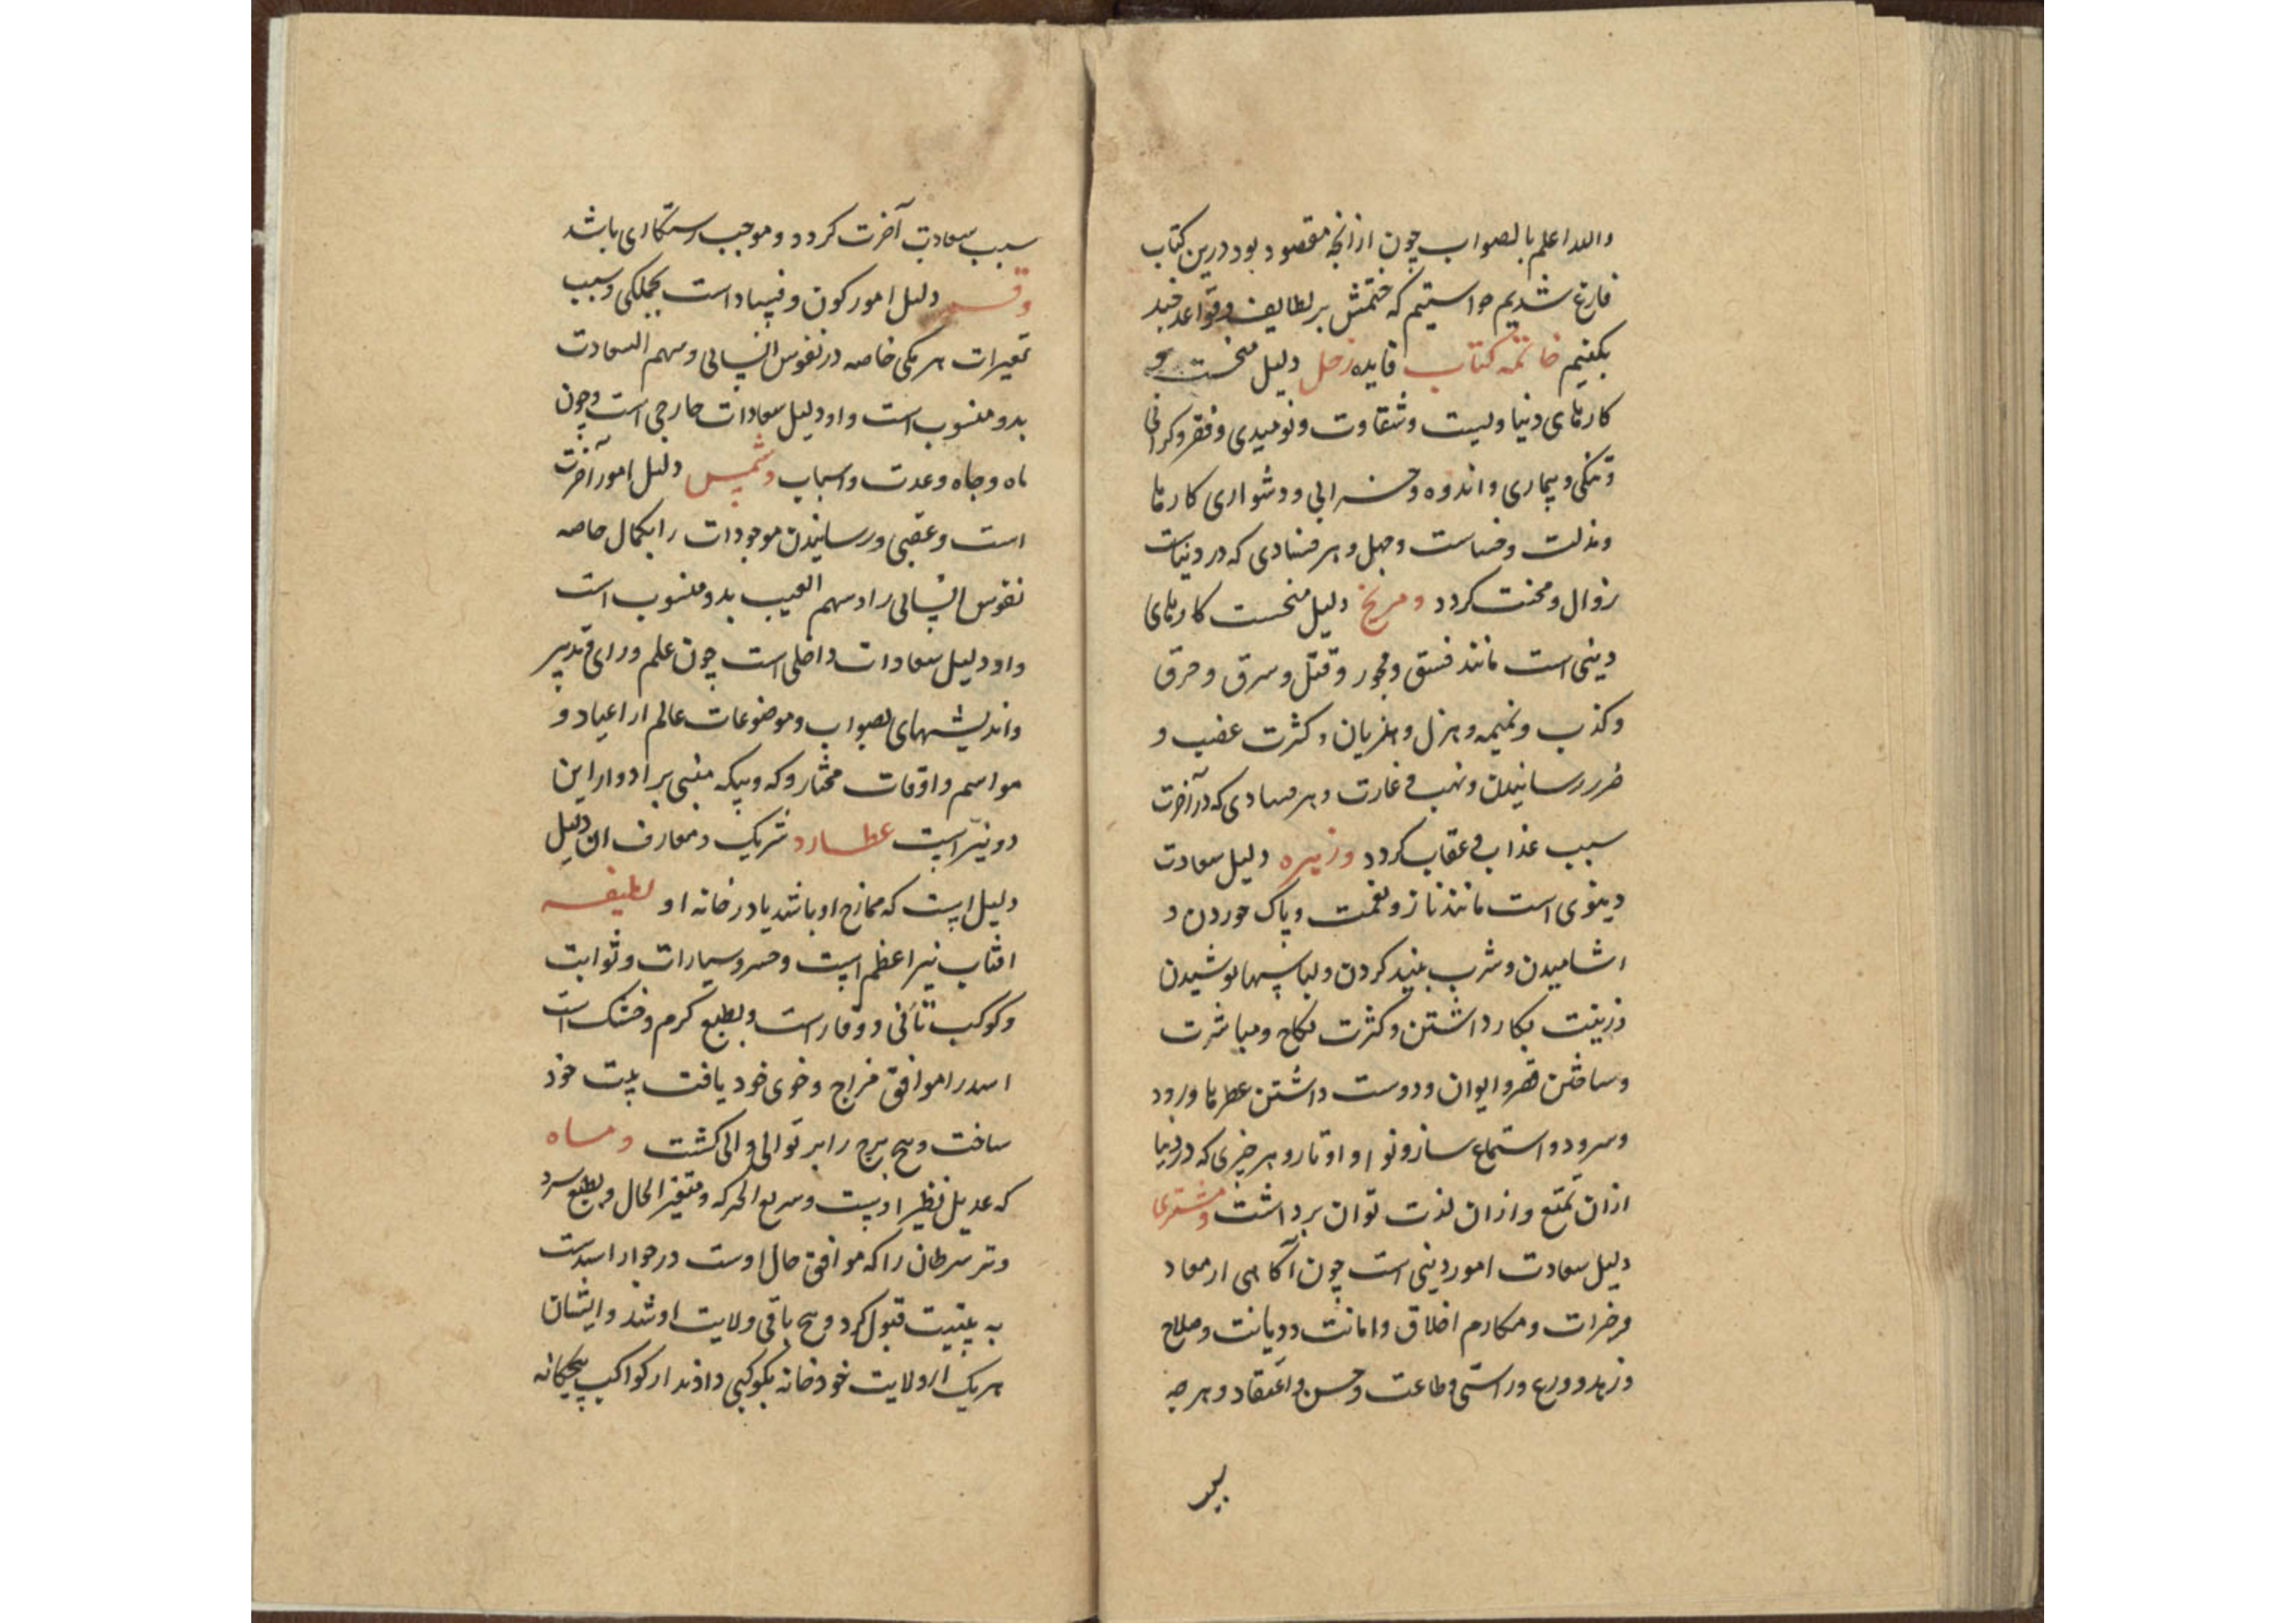 والله اعلم بالصواب چون از انجه مقصود بود درین کتاب
فارغ شدیم خواستیم که ختمش بر لطایف و قواعد چند
بکنیم خاتمه کتاب فایده زحل دلیل منحست و
کارهای دنیاویست و شقاوت و نومیدی و فقر و کرانی
و تنکی و بیماری و اندوه و خرابی و دشواری کارها
و مذلت و خساست و جهل و هر فسادی که در دنیاست
زوال و محنت کردد و مریخ دلیل منحست کارهای
دینی است مانند فسق و فجور و قتل و سرق و حرق
و کذب و نمیمه و هزل و هذیان و کثرت غضب و
ضرر رسانیدن و نهب و غارت و هر فسادی که در آخرت
سبب عذاب و عقاب کردد و زهره دلیل سعادت
دینوی است مانند ناز و نعمت و پاک خوردن و
اشامیدن و شرب نبید کردن و لباسها پوشیدن
و زینت بکار داشتن و کثرت نکاح و مباشرت
و ساختن قصر و ایوان و دوست داشتن عطرها و رود
و سرود و استماع ساز و نوا و اوتار و هر چیزی که در دنیا
ازان تمتع و ازان لذت توان برداشت و مشتری
دلیل سعادت امور دینی است چون آکاهی از معاد
و خیرات و مکارم اخلاق و امانت و دیانت و صلاح
و زهد و ورع و راستی و طاعت و حسن و اعتقاد و هر چه
سبب سعادت آخرت کردد و موجب رستکاری باشد
و قمر دلیل امور کون و فساد است بجملکی و سبب
تغیرات هر یکی خاصه در نفوس انسانی و سهم السعادت
بدو منسوب است و او دلیل سعادات خارجی است چون
ماه و جاه و عدت و اسباب و شمس دلیل امور آخرت
است و عقبی و رسانیدن موجودات را بکمال خاصه
نفوس انسانی را و سهم الغیب بدو منسوب است
و او دلیل سعادات داخلی است چون علم و رای و تدبیر
و اندیشهای بصواب و موضوعات عالم از اعیاد و
مواسم و اوقات مختار و که و بیکه مبنی بر ادوار این
دو نیر است عطارد شریک و معارف ان دلیل
دلیل است که ممازج او باشد یا در خانه او لطیفه
افتاب نیر اعظم است و خسرو سیارات و ثوابت
و کوکب تأنی و وقار است و بطبع کرم و خشک است
اسد را موافق مزاج و خوی خود یافت بیت خود
ساخت و پنج برج را بر توالی والی کشت و ماه
که عدیل نظیر اوست و سریع الحرکه و متغیر الحال و بطبع سرد
و تر سرطان را که موافق حال اوست در جوار اسدست
به بیتیت قبول کرد و پنج باقی ولایت او شد و ایشان
هر یک از ولایت خود خانه بکوکبی دادند از کواکب پنجکانه